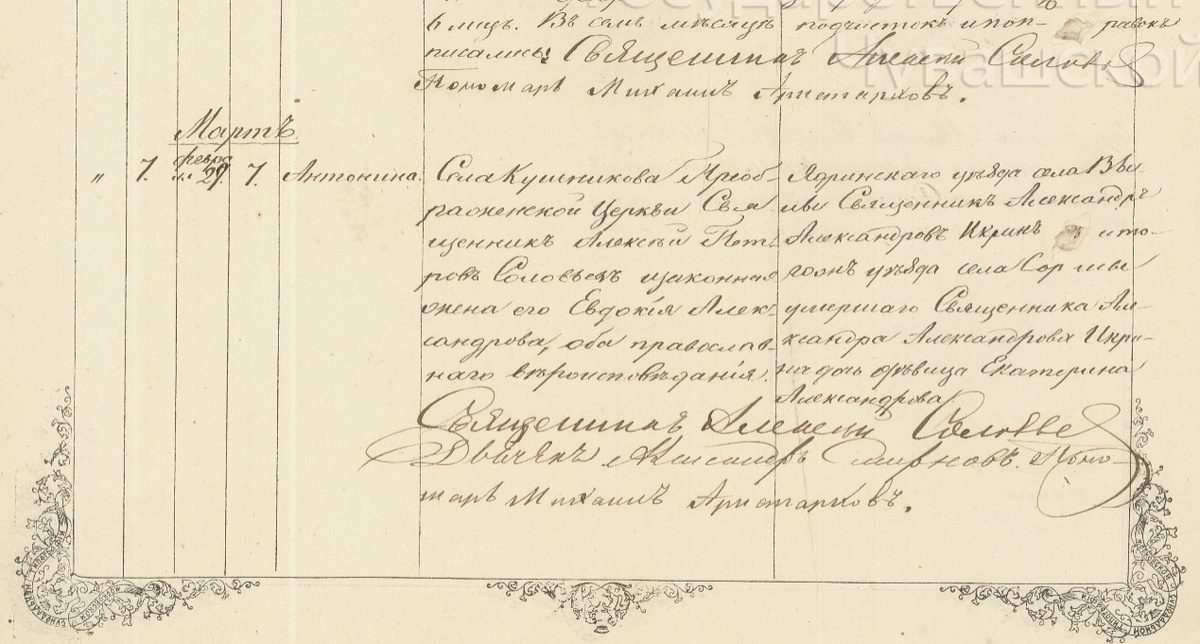 6 лицъ. Въ семъ мѣсяцѣ подчистокъ и поп- равокъ
писались: Священникъ Алексѣй Соловьев
Пономарь Михаилъ Аристарховъ.
Мартъ.
" 7. февра ля 29. 7. Антонина.
Села Кушникова Преоб-
раженской Церкви Свя
щенникъ Алексѣй Пет-
ровъ Соловьевъ и законная
жена его Евдокія Алек-
сандрова, оба православ-
наго вѣроисповѣданія.
Ядринскаго уѣзда села
Священникъ Александръ
Александровъ Икринъ и то-
гожъ уѣзда села Сормы
умершаго Священника Але-
ксандра Александрова Икри-
на дочь дѣвица Екатерина
Александрова
Священникъ Алексѣй Соловьев
Дьячекъ Александръ Смирновъ. Поно-
марь Михаилъ Аристарховъ.
Государственный
Чувашской
СИНОДАЛЬНОЙ ТИПОГРАФІИ МОСКОВСКОЙ
МОСКОВСКОЙ СИНОДАЛЬНОЙ ТИПОГРАФІИ